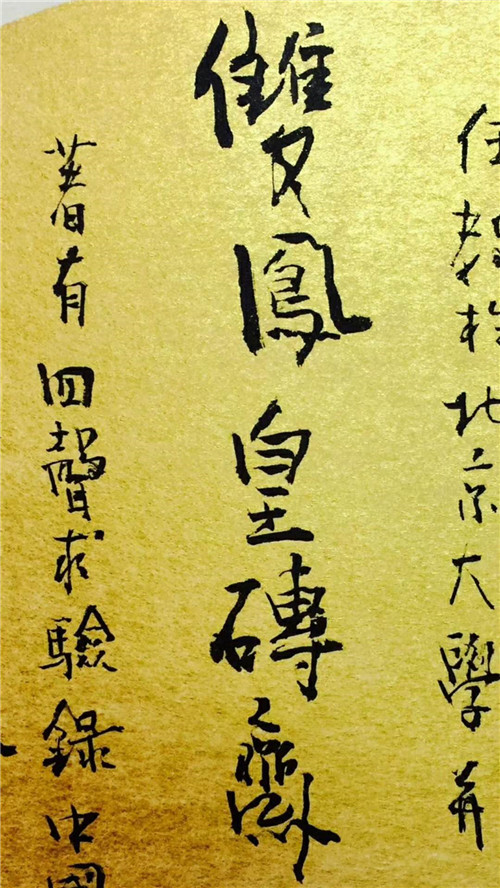 任教於北京大學并
雙鳳皇磚齋
著有四聲求驗錄中國